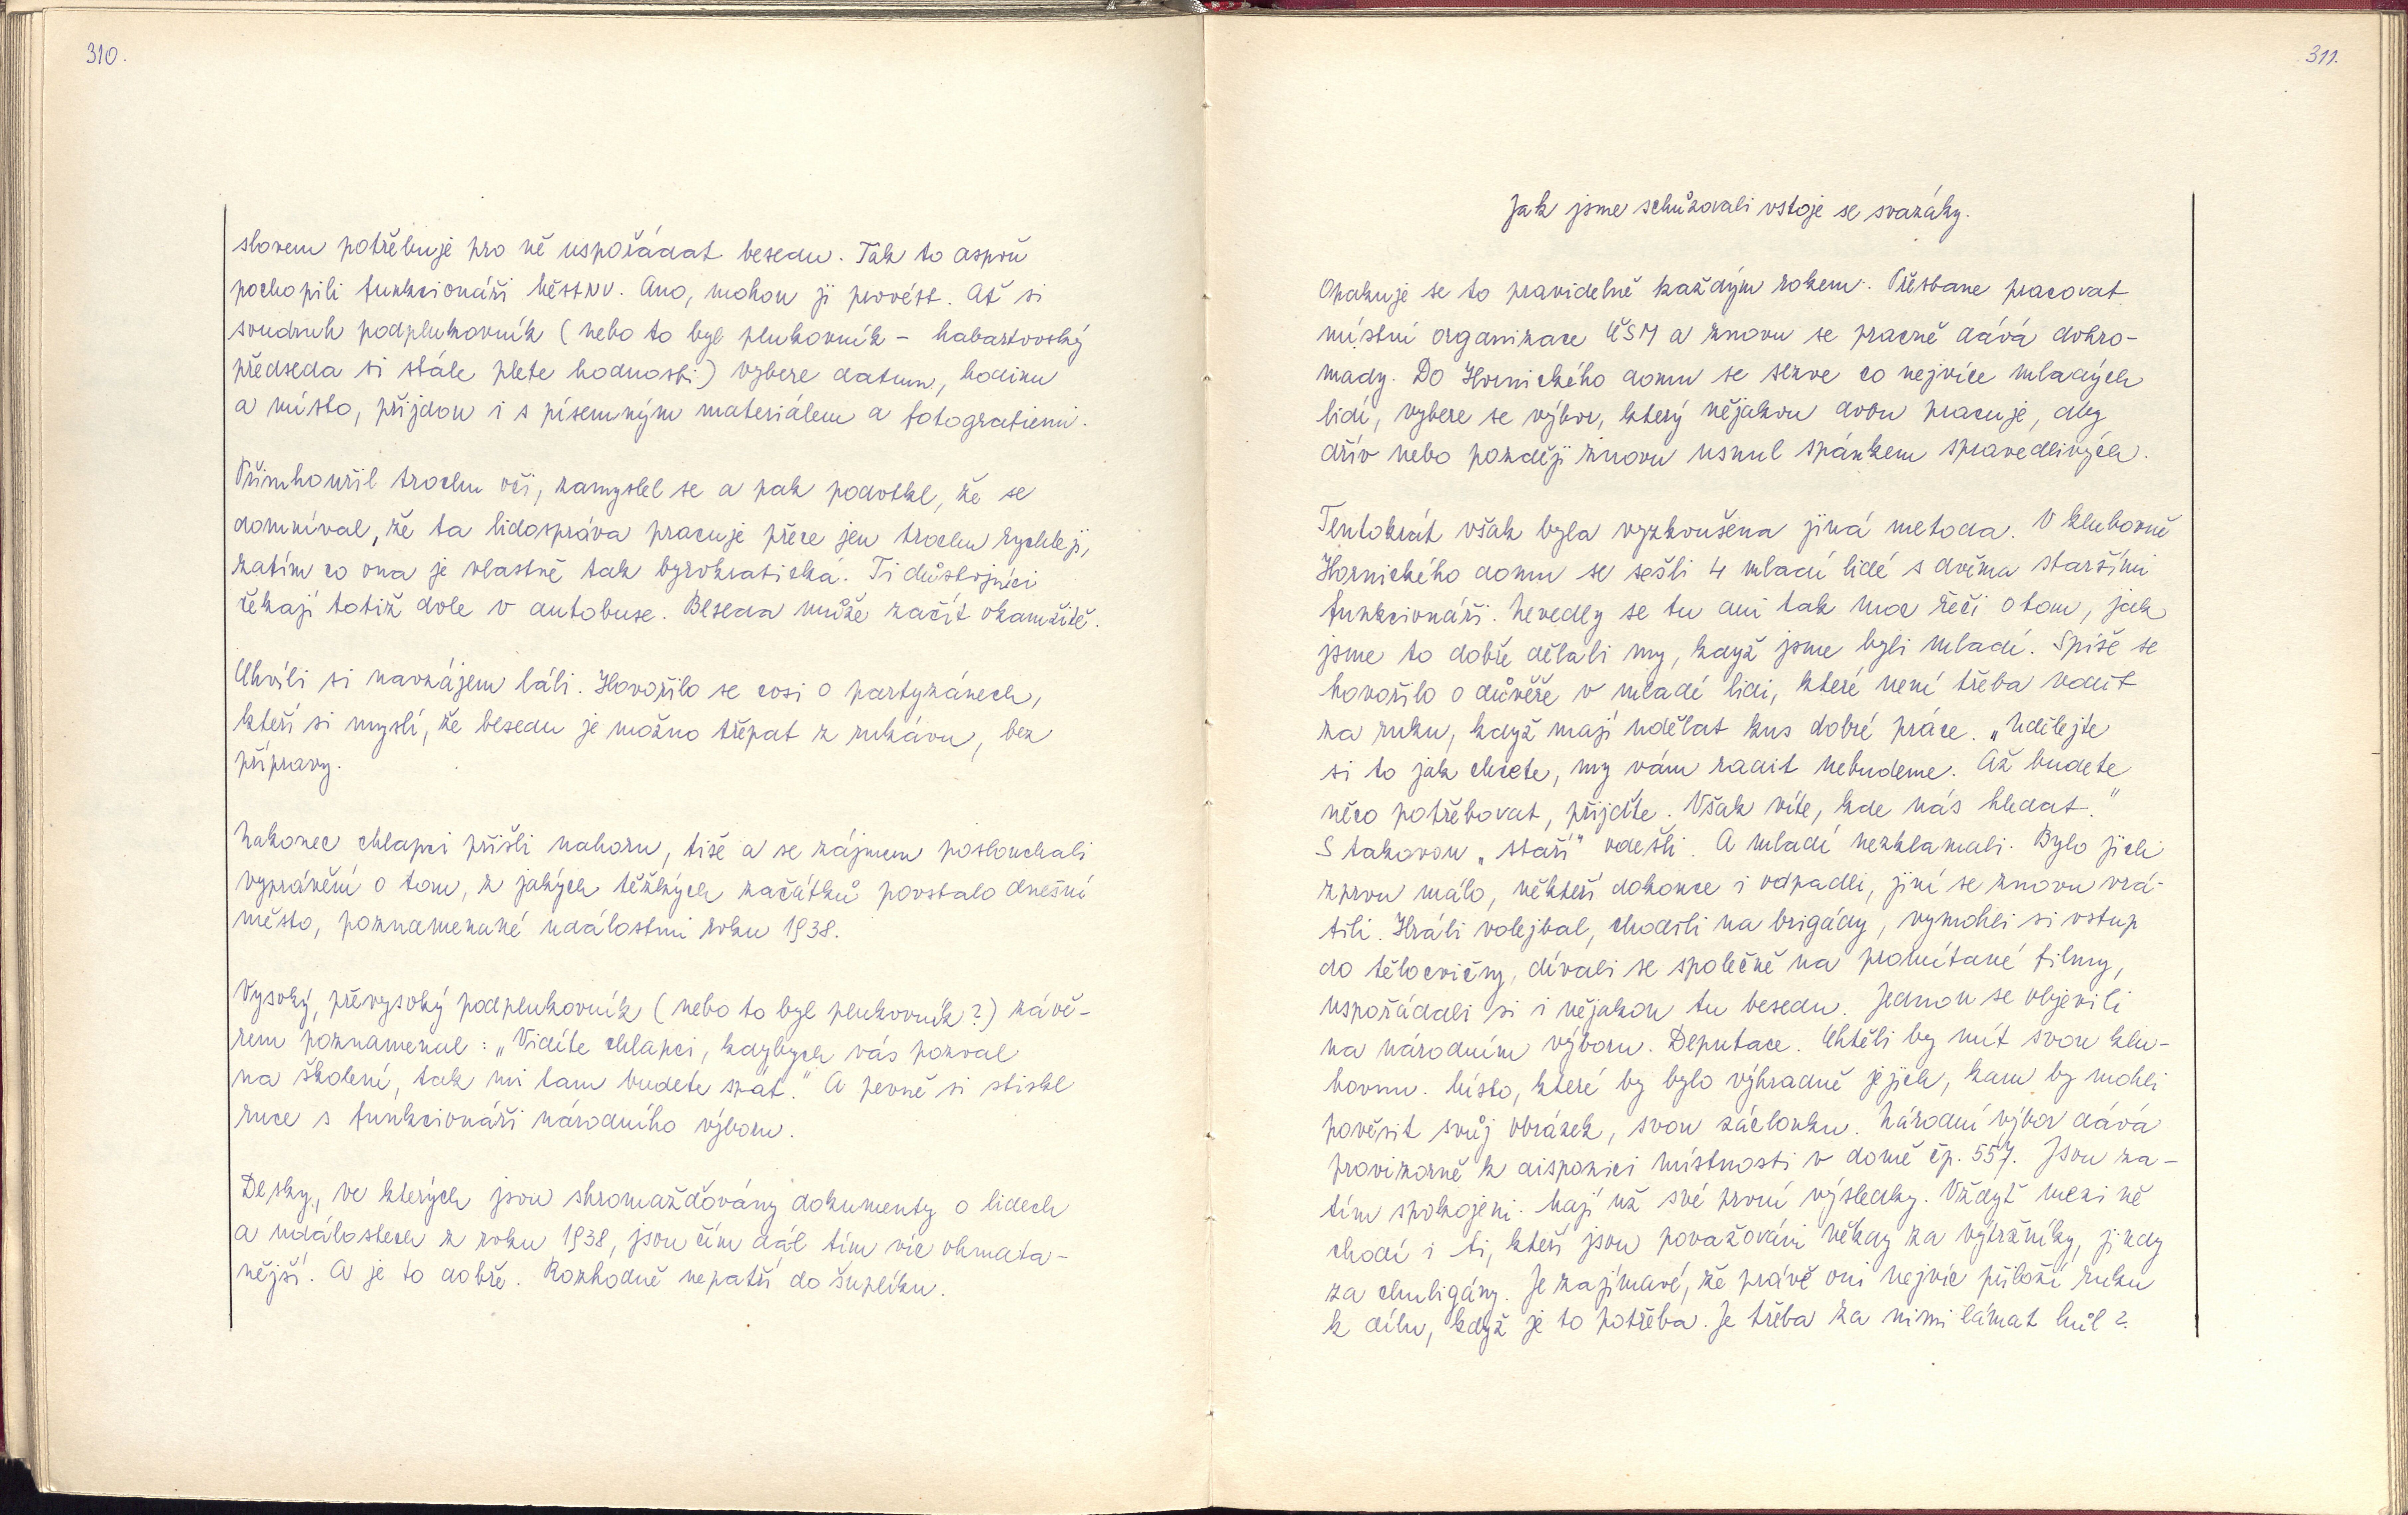 310.
slovem potřebuje pro ně uspořádat besedu. Tak to aspoň
pochopili funkcionáři MěstNV. Ano, mohou ji provést. Ať si
soudruh podplukovník (nebo to byl plukovník - habartovský
předseda si stále plete hodnosti) vybere datum, hodinu
a místo, přijdou i s písemným materiálem a fotografiemi.
Přimhouřil trochu oči, zamyslel se a pak podotkl, že se
domníval, že ta lidospráva pracuje přece jen trochu rychleji,
zatím co ona je vlastně tak byrokratická. Ti důstojníci
čekají totiž dole v autobuse. Beseda může začít okamžitě.
Chvíli si navzájem láli. Hovořilo se cosi o partyzánech,
kteří si myslí, že besedu je možno třepat z rukávu, bez
přípravy.
Nakonec chlapci přišli nahoru, tiše a se zájmem poslouchali
vyprávění o tom, z jakých těžkých začátků povstalo dnešní
město, poznamenané událostmi roku 1938.
Vysoký, převysoký podplukovník (nebo to byl plukovník?) závě-
rem poznamenal: „Vidíte chlapci, kdybych vás pozval
na školení, tak mi tam budete spát." A pevně si stiskl
ruce s funkcionáři národního výboru.
Desky, ve kterých jsou shromažďovány dokumenty o lidech
a událostech z roku 1938, jsou čím dál tím víc ohmata-
nější. A je to dobře. Rozhodně nepatří do šuplíku.
311.
Jak jsme schůzovali vstoje se svazáky.
Opakuje se to pravidelně každým rokem. Přestane pracovat
místní organizace ČSM a znovu se pracně dává dohro-
mady. Do Hornického domu se sezve co nejvíce mladých
lidí, vybere se výbor, který nějakou dobu pracuje, aby
dřív nebo později znovu usnul spánkem spravedlivých.
Tentokrát však byla vyzkoušena jiná metoda. V klubovně
Hornického domu se sešli 4 mladí lidé s dvěma staršími
funkcionáři. Nevedly se tu ani tak moc řeči o tom, jak
jsme to dobře dělali my, když jsme byli mladí. Spíše se
hovořilo o důvěře v mladé lidi, které není třeba vodit
za ruku, když mají udělat kus dobré práce. „Udělejte
si to jak chcete, my vám radit nebudeme. Až budete
něco potřebovat, přijďte. Však víte, kde nás hledat."
S takovou „staří" odešli. A mladí nezklamali. Bylo jich
zprvu málo, někteří dokonce i odpadli, jiní se znovu vrá-
tili. Hráli volejbal, chodili na brigády, vymohli si vstup
do tělocvičny, dívali se společně na promítané filmy,
uspořádali si i nějakou tu besedu. Jednou se objevili
na národním výboru. Deputace. Chtěli by mít svou klu-
bovnu. Místo, které by bylo výhradně jejich, kam by mohli
pověsit svůj obrázek, svou záclonku. Národní výbor dává
provizorně k dispozici místnosti v domě čp. 557. Jsou za-
tím spokojeni. Mají už své první výsledky. Vždyť mezi ně
chodí i ti, kteří jsou považováni někdy za výtržníky, jindy
za chuligány. Je zajímavé, že právě oni nejvíc přiloží ruku
k dílu, když je to potřeba. Je třeba za nimi lámat hůl?